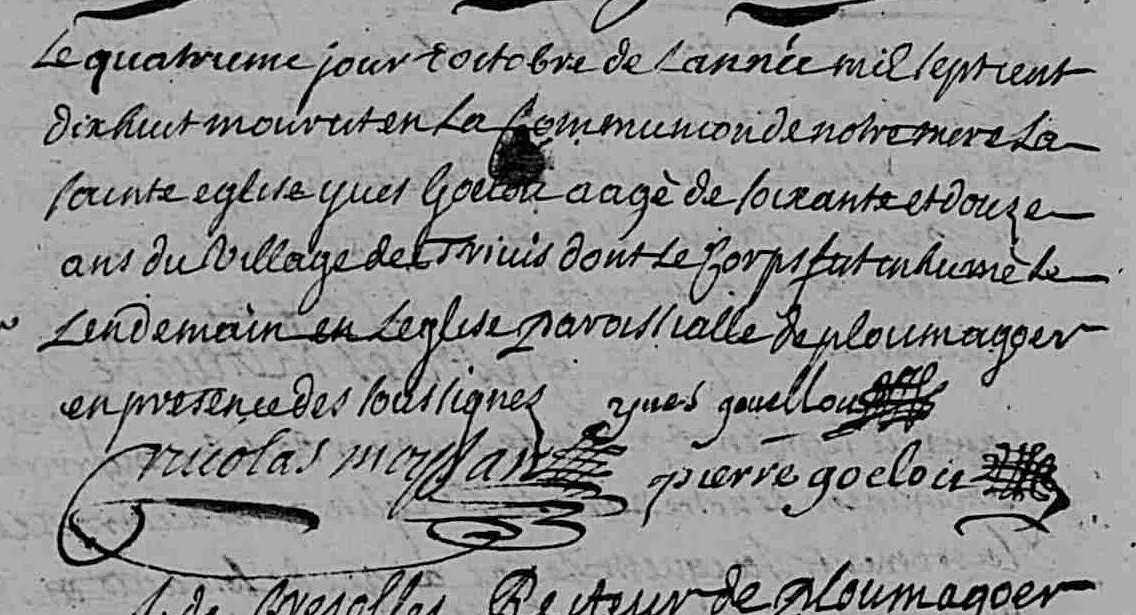 Le quatrieme jour d'octobre de L'année mil sept cent
dix huit mourut en La Communion de notre mere La
sainte eglise yves Goelou aagè de soixante et douze
ans du Village de dont Le Corps fut inhumè Le
Lendemain en L'eglise paroissialle de ploumagoer
en presence des soussignes yves gouellou
nicolas pierre goelou
de Recteur de ploumagoer